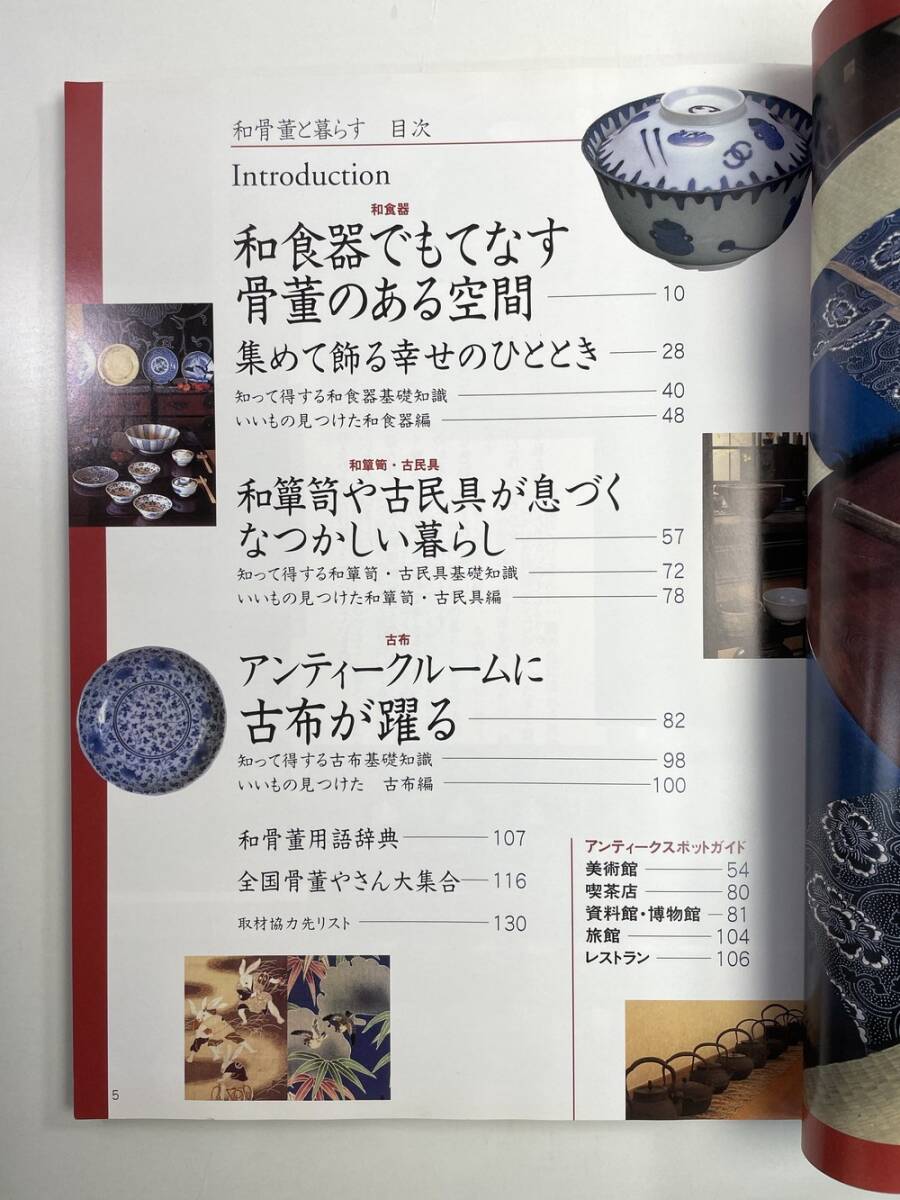 和骨董と暮らす 目次
Introduction
和食器
和食器でもてなす
骨董のある空間 10
集めて飾る幸せのひととき 28
知って得する和食器基礎知識 40
いいもの見つけた和食器編 48
和簞笥・古民具
和簞笥や古民具が息づく
なつかしい暮らし 57
知って得する和簞笥・古民具基礎知識 72
いいもの見つけた和簞笥・古民具編 78
古布
アンティークルームに
古布が躍る 82
知って得する古布基礎知識 98
いいもの見つけた 古布編 100
和骨董用語辞典 107
全国骨董やさん大集合 116
取材協力先リスト 130
アンティークスポットガイド
美術館 54
喫茶店 80
資料館・博物館 81
旅館 104
レストラン 106
5